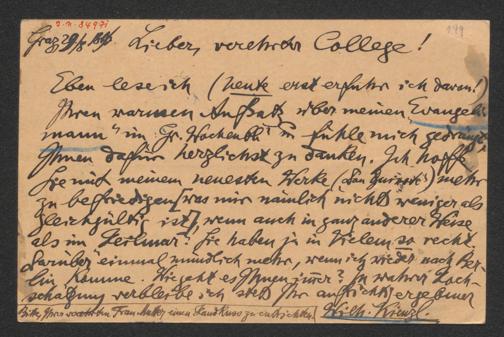 I.N. 84971
149
Graz 29/8 1896 Lieber, verehrter College!
Eben lese ich (heute erst erfuhr ich davon!)
Ihren warmen Aufsatz über meinen „Evangeli-
mann“ im „Fr. Wochenbl.“ u. fühle mich gedrängt
Ihnen dafür herzlichst zu danken. Ich hoffe
Sie mit meinem neuesten Werke („Don Quixote“) mehr
zu befriedigen [was mir nämlich nichts weniger als
gleichgültig ist], wenn auch in ganz anderer Weise
als im Heilmar! Sie haben ja in Vielem so recht.
Darüber einmal mündlich mehr, wenn ich wieder nach Ber-
lin komme. Wie geht es Ihnen immer? In wahrer Hoch-
schätzung verbleibe ich stets Ihr aufrichtig ergebener
Bitte Ihrer verehrten Frau einen Handkuss zu entrichten. Wilh. Kienzl.